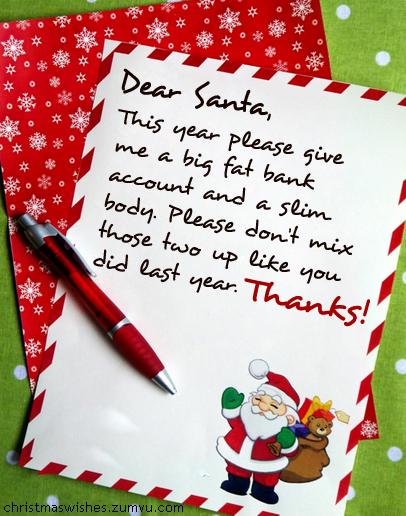 Dear Santa,
This year please give
me a big fat bank
account and a slim
body. Please don't mix
those two up like you
did last year. Thanks!
christmaswishes.zumvu.com